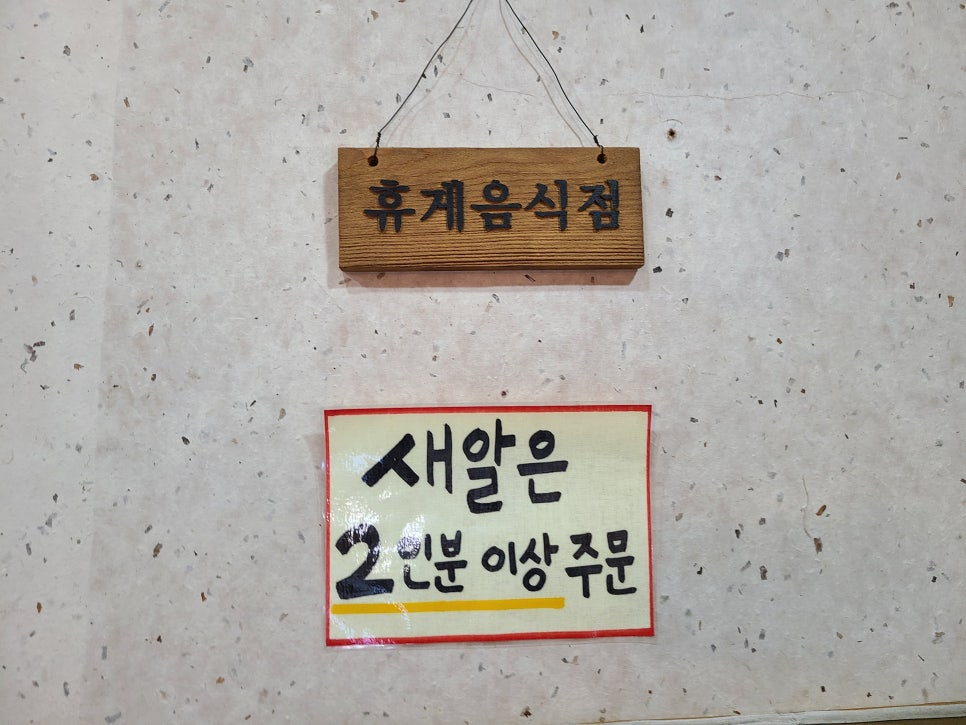 휴게음식점
새알은
2인분 이상 주문